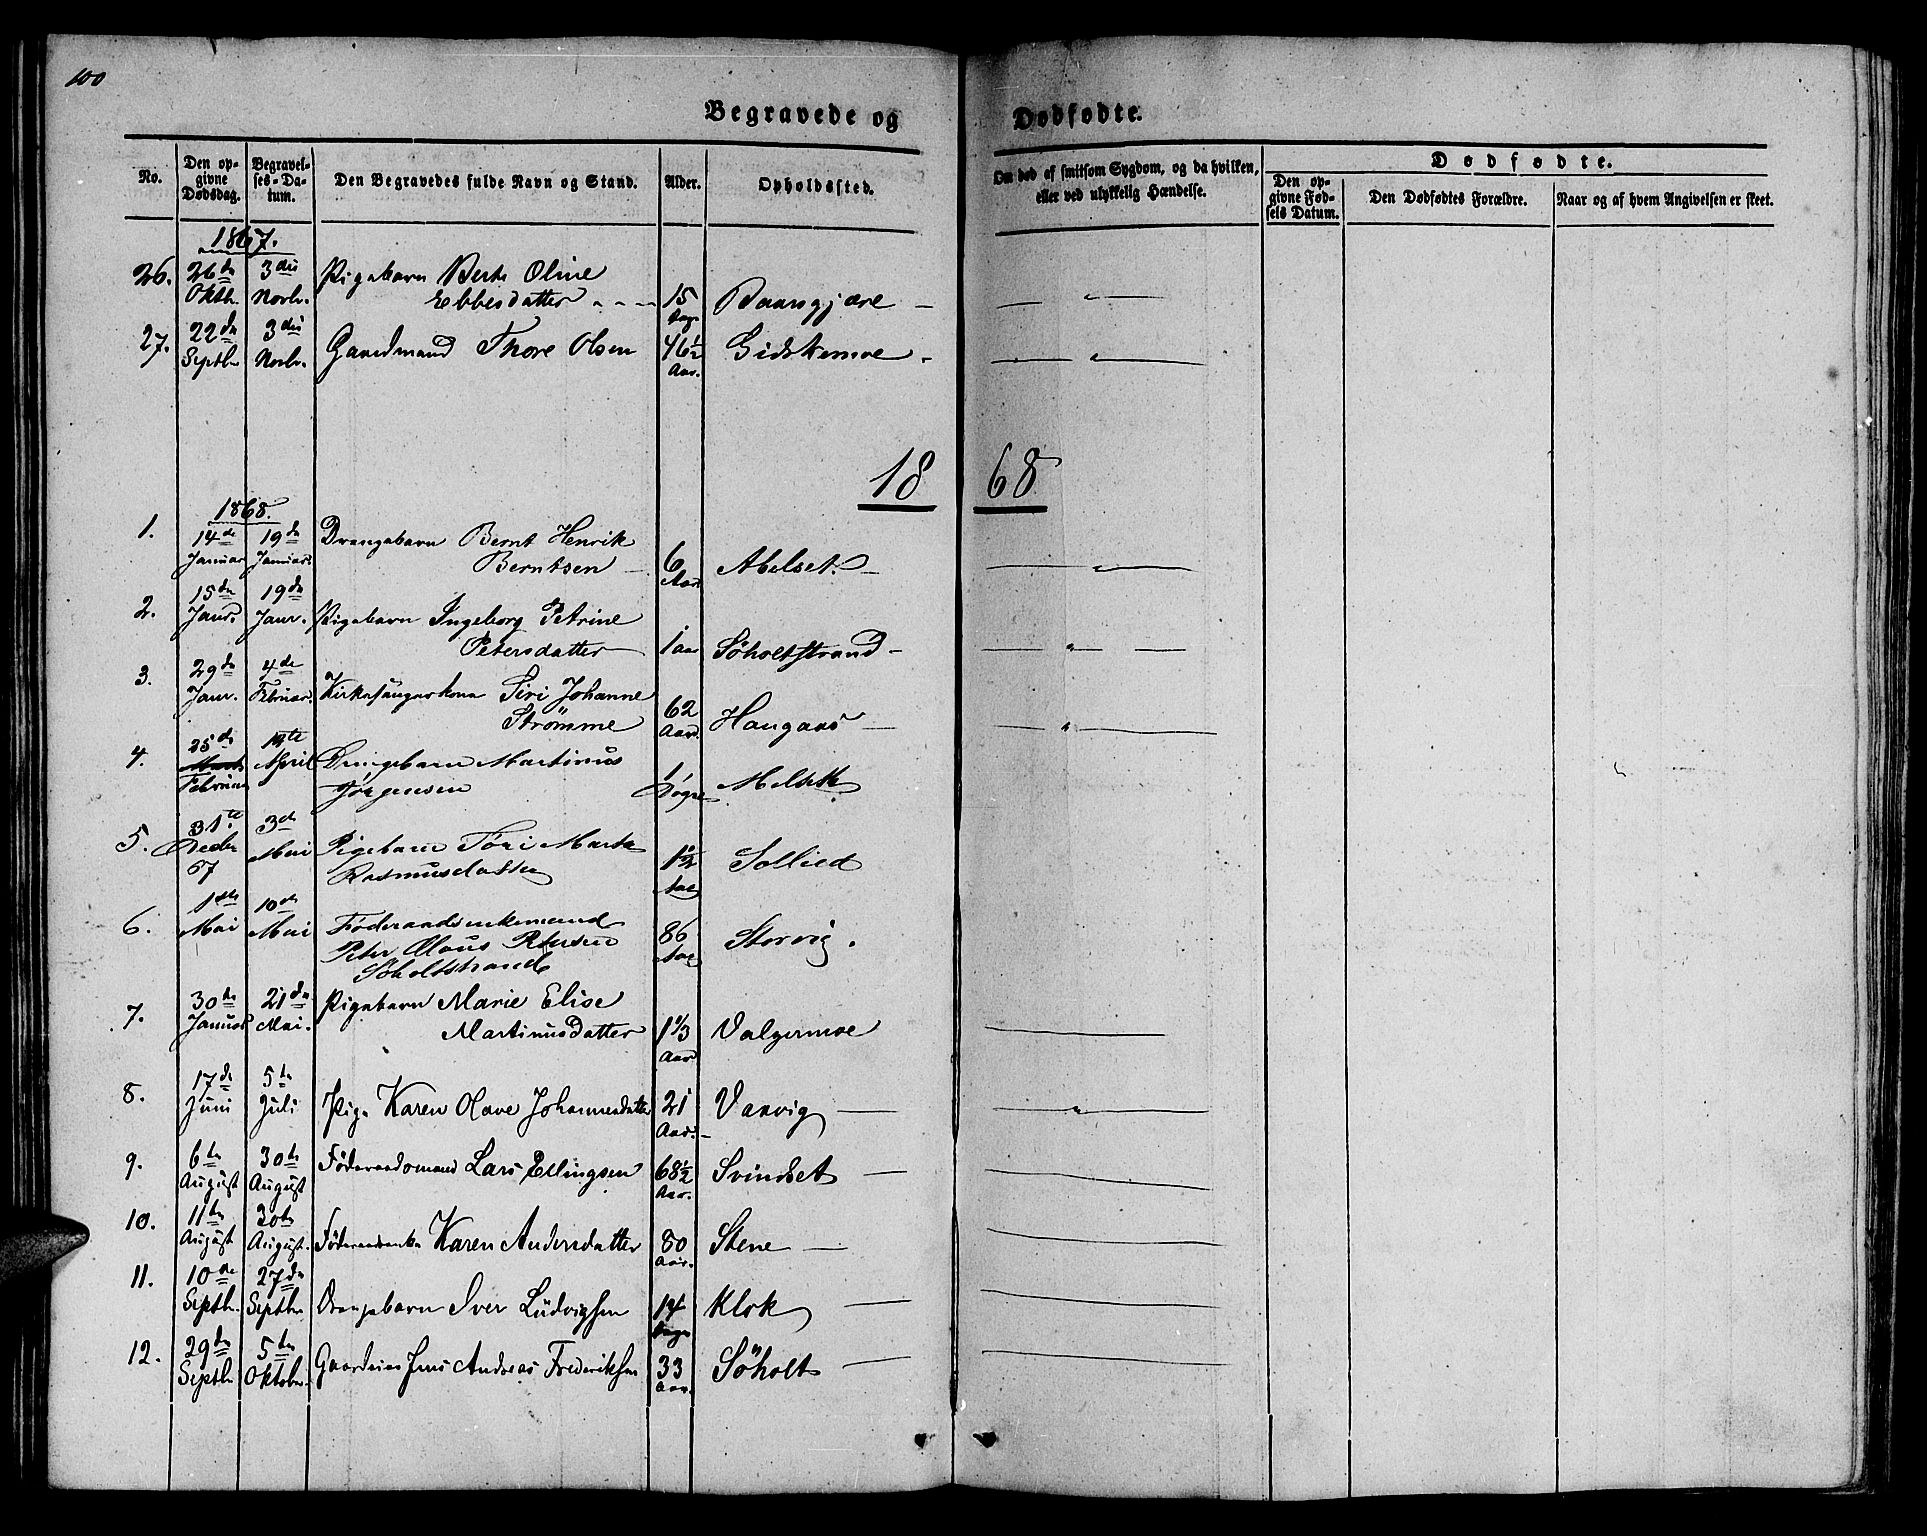 100
Begravede og Dødfødte.
No.
Den opgivne Dødsdag.
Begravelses-Datum.
Den Begravedes fulde Navn og Stand.
Alder.
Opholdssted.
Om død af smitsom Sygdom, og da hvilken, eller ved ulykkelig Hændelse.
Dødfødte.
Den opgivne Fødsels Datum.
Den Dødfødtes Forældre.
Naar og af hvem Angivelsen er skeet.
1867.
26. 26de Oktbr. 3die Novbr. Pigebarn Berte Oline
Ebbesdatter 15 Dage
27. 22de Septbr. 3die Novbr. Gaardmand Thore Olsen 46½ Aar. Gidskemoe
1868
1868.
1. 14de Januar 19de Januar. Drengebarn Bernt Henrik
Berntsen 6 Aar. Abelset.
2. 15de Janr. 19de Janr. Pigebarn Ingeborg Petrine
Petersdatter 1 aar Søholtstrand
3. 29de Janr. 4de Februar. Kirkesangerkone Siri Johanne
Strømme 62 Aar. Haugaas
4. 25de Marts Februar April Drengebarn Martinus
Jørgensen 1 Døgn Melseth
5. 31te Decbr 67 3de Mai Pigebarn Marta
Rasmusdatter 1½ Aar Sollied
6. 1ste Mai 10de Mai Føderaadsenkemand
Peter Claus Petersen
Søholtstrand 86 Aar Storvig.
7. 30te Januar 21de Mai. Pigebarn Marie Elise
Martinusdatter 1⅓ Aar Valgermoe
8. 17de Juni 5te Juli Pige Karen Olave Johannesdatter 21 Aar. Vaavig
9. 6te August 30te August Føderaadsmand Lars Ellingsen 68½ Aar. Svindset
10. 11te August 30te August. Føderaadsenke Karen Andersdatter 80 Aar. Stene
11. 10de Septbr. 27de Septbr. Drengebarn Iver Ludvigsen 14 Dage Klok
12. 29de Septbr 5te Oktober Jens Andreas Frederiksen 33 Aar. Søholt